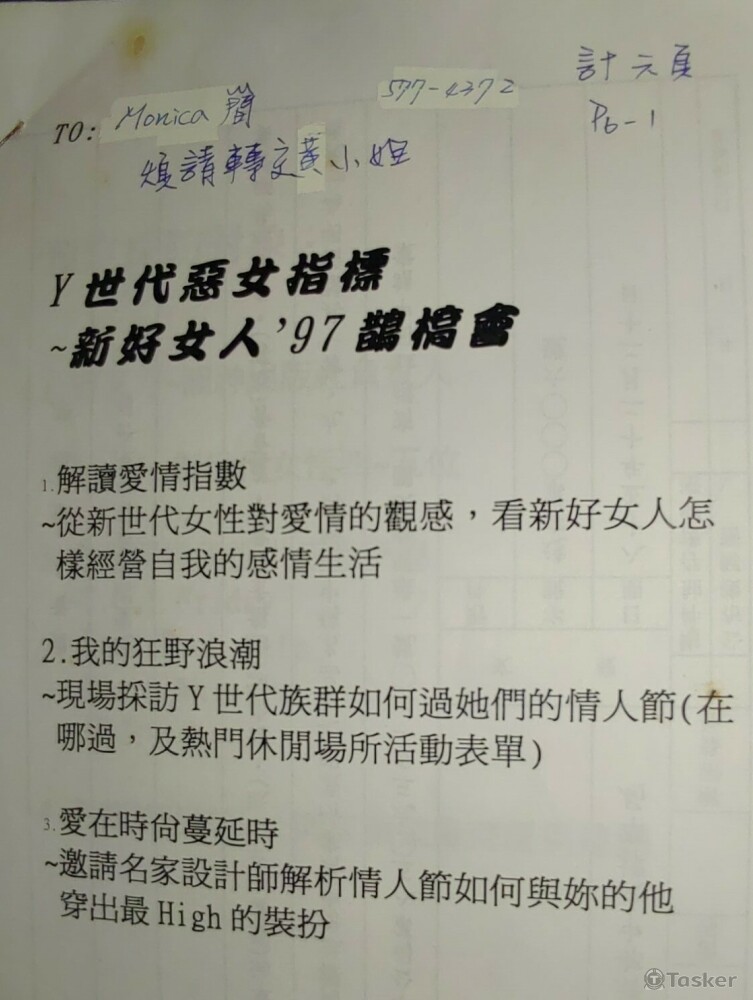 計六頁
577-4372
P6-1
TO: Monica 簡
煩請轉交黃小姐
Y世代惡女指標
~新好女人'97鵲橋會
1.解讀愛情指數
~從新世代女性對愛情的觀感，看新好女人怎
樣經營自我的感情生活
2.我的狂野浪潮
~現場採訪Y世代族群如何過她們的情人節(在
哪過，及熱門休閒場所活動表單)
3.愛在時尚蔓延時
~邀請名家設計師解析情人節如何與妳的他
穿出最High的裝扮
Tasker